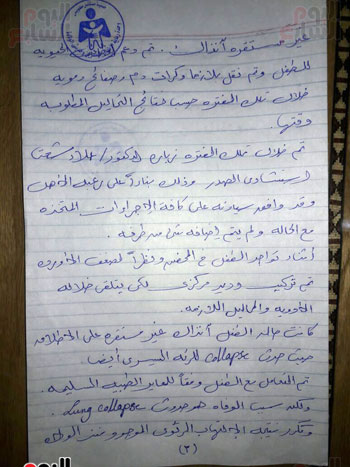 غير مستقره آنذاك . تم دعم الحيويه
للطفل وتم نقل بلازما وكرات دم وصفائح دمويه
خلال تلك الفتره حسب نتائج التحاليل المطلوبه
وقتها .
تم خلال تلك الفتره زياره للدكتور / علاء
استشارى الصدر وذلك بناءاً على رغبه الأهل
وقد وافق سيادته على كافة الإجراءات المتخذه
مع الحاله ولم يتم إضافه شئ من طرفه .
أثناء تواجد الطفل فى الحضن ونظراً لضعف الأورده
تم تركيب وريد مركزى لكى يتلقى خلاله
الأدويه والمحاليل اللازمه .
كانت حاله الطفل آنذاك غير مستقره على الاطلاق
حيث حدث collapse للرئه اليسرى أيضا .
تم التعامل مع الطفل وفقاً للمعايير الطبيه السليمه .
ولكن سبب الوفاه هو حدوث Lung collapse .
نتيجه الالتهاب الرئوى الموجود منذ الولاده
(٢)
اليوم السابع